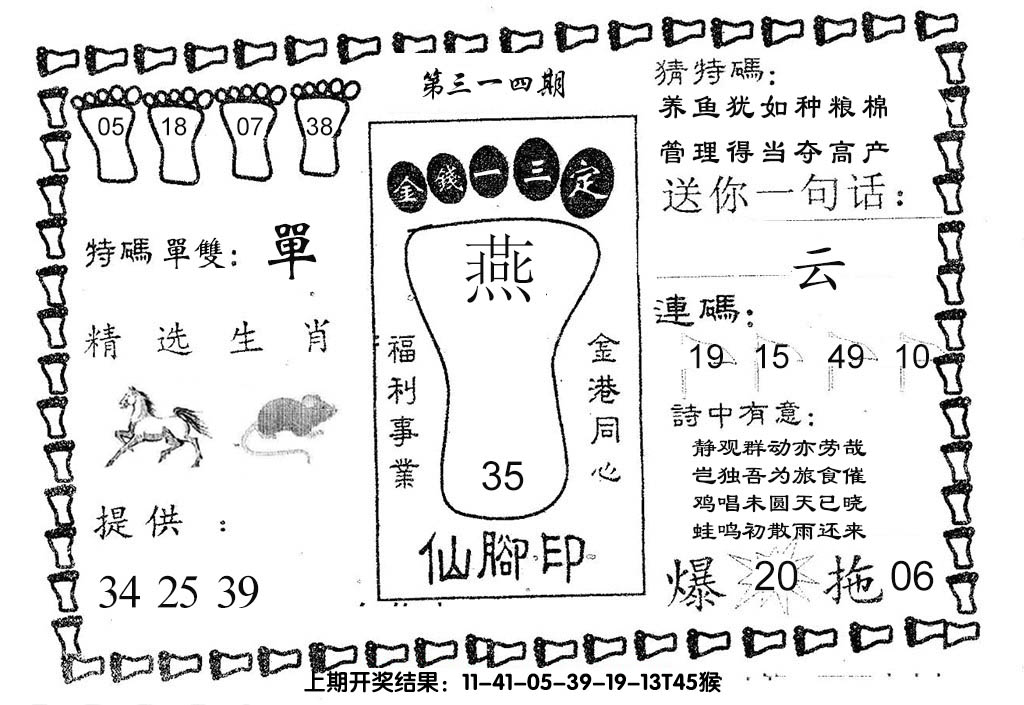 第三一四期
05 18 07 38
特碼單雙：單
精选生肖
提供：
34 25 39
金錢一三定
燕
福利事業
金港同心
35
仙腳印
猜特碼：
养鱼犹如种粮棉
管理得当夺高产
送你一句话：
云
連碼：
19 15 49 10
詩中有意：
静观群动亦劳哉
岂独吾为旅食催
鸡唱未圆天已晓
蛙鸣初散雨还来
爆 20 拖 06
上期开奖结果：11-41-05-39-19-13T45猴